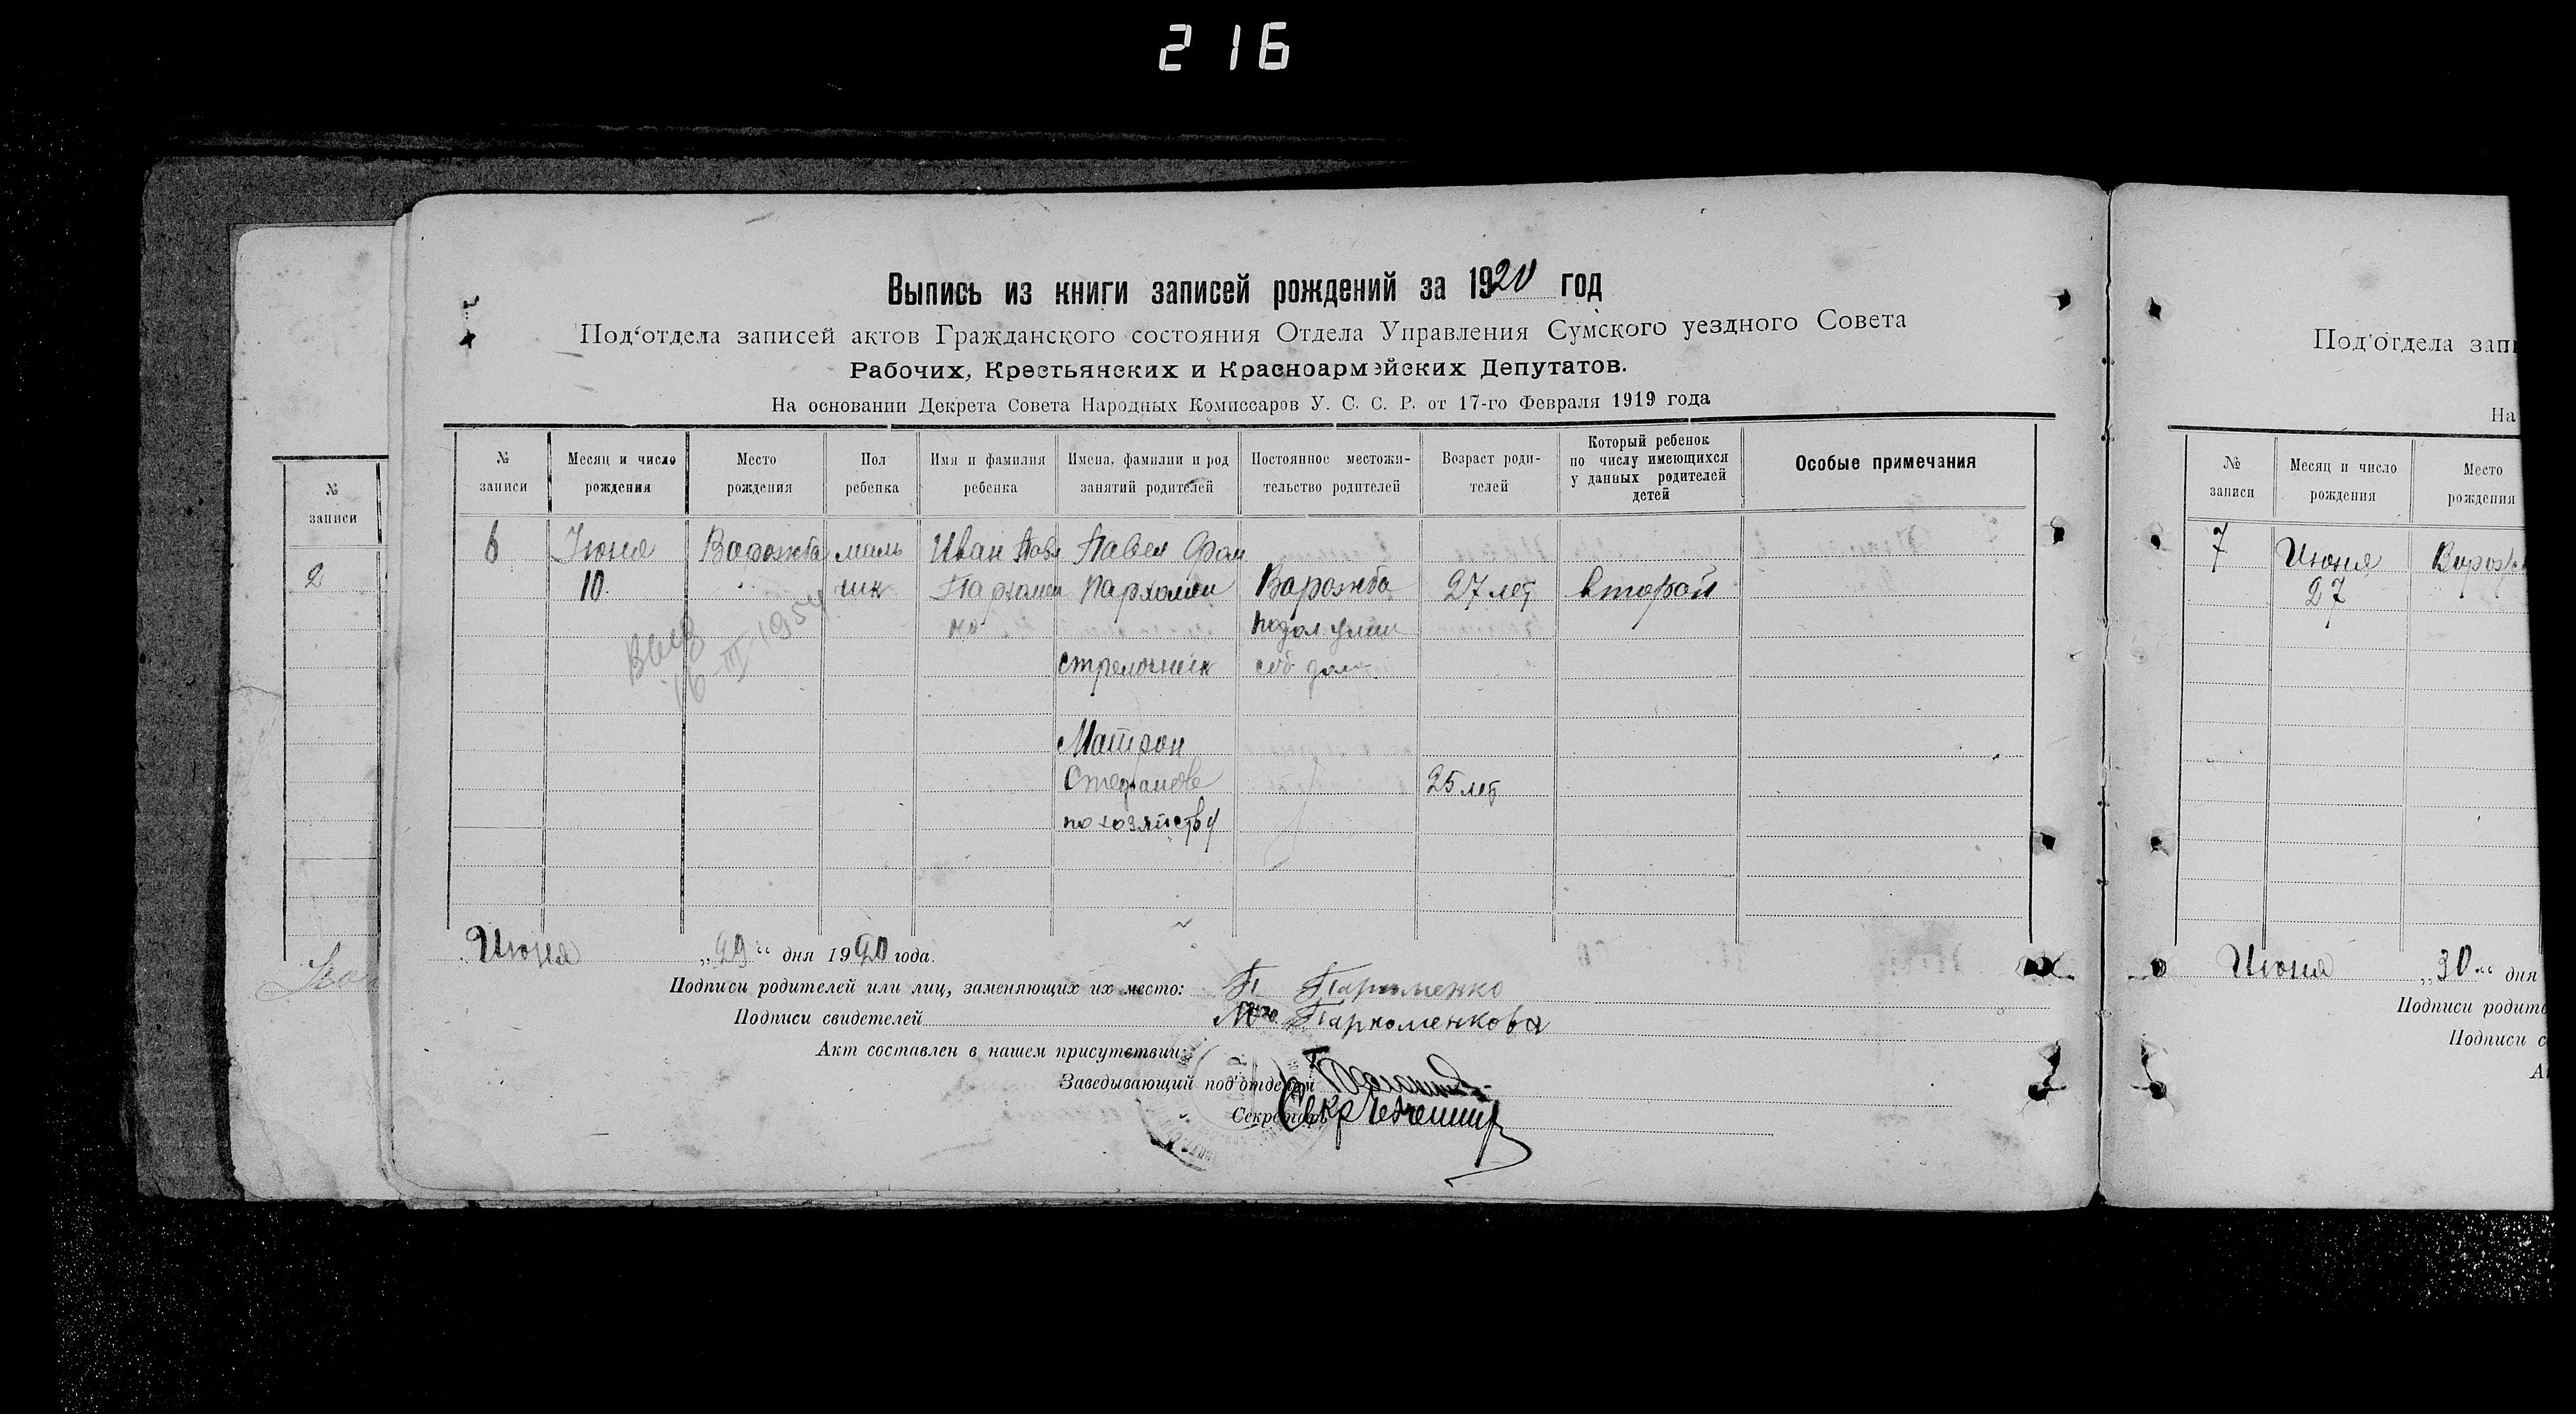 216
Выпись из книги записей рождений за 1920 год
Под‘отдела записей актов Гражданского состояния Отдела Управления Сумского уездного Совета
Рабочих, Крестьянских и Красноармейских Депутатов.
На основании Декрета Совета Народных Комиссаров У. С. С. Р. от 17-го Февраля 1919 года
№ записи
Месяц и число рождения
Место рождения
Пол ребенка
Имя и фамилия ребенка
Имена, фамилии и род занятий родителей
Постоянное местожительство родителей
Возраст родителей
Который ребенок по числу имеющихся у данных родителей детей
Особые примечания
6 Июня Ворожба маль Иван Павл Павел Фом
10. чик Пархомен Пархомен Ворожба 27 лет второй
ко подол улиц
стрелочник соб. дом
Матрон
Стефанове 25 лет
по хозяйству
16-III-1954
Июня „29“ дня 1920 года.
Подписи родителей или лиц, заменяющих их место: П Пархоменко
Подписи свидетелей М Пархоменкова
Акт составлен в нашем присутствии:
Заведывающий под‘отделом
Секретарь
№ записи
2
Под‘отдела запи
На
№ записи
Месяц и число рождения
Место рождения
7 Июня Ворож
27
Июня „30“ дня
Подписи родите
Подписи с
А